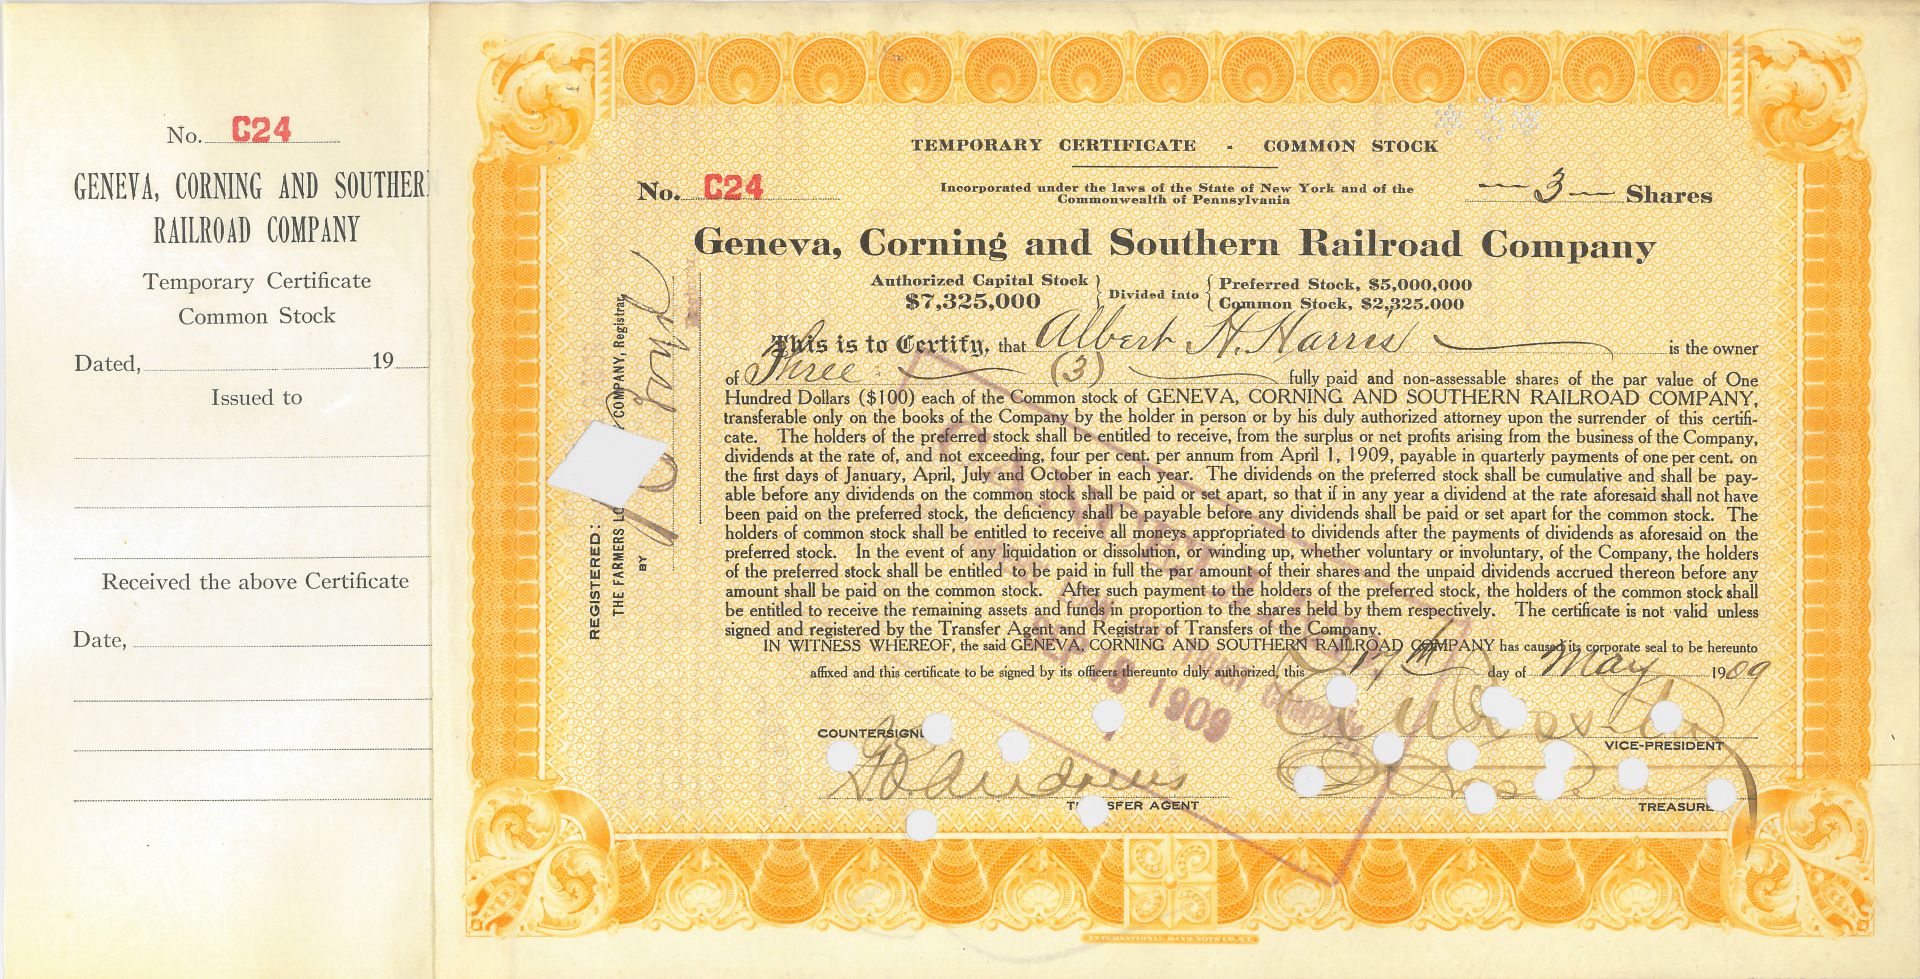 No. C24
GENEVA, CORNING AND SOUTHERN
RAILROAD COMPANY
Temporary Certificate
Common Stock
Dated, 19
Issued to
Received the above Certificate
Date,
TEMPORARY CERTIFICATE - COMMON STOCK
No. C24
Incorporated under the laws of the State of New York and of the
Commonwealth of Pennsylvania
3 Shares
Geneva, Corning and Southern Railroad Company
Authorized Capital Stock
$7,325,000
Divided into
Preferred Stock, $5,000,000
Common Stock, $2,325.000
This is to Certify, that Albert H. Harris is the owner
of Three (3) fully paid and non-assessable shares of the par value of One
Hundred Dollars ($100) each of the Common stock of GENEVA, CORNING AND SOUTHERN RAILROAD COMPANY,
transferable only on the books of the Company by the holder in person or by his duly authorized attorney upon the surrender of this certifi-
cate. The holders of the preferred stock shall be entitled to receive, from the surplus or net profits arising from the business of the Company,
dividends at the rate of, and not exceeding, four per cent. per annum from April 1, 1909, payable in quarterly payments of one per cent. on
the first days of January, April, July and October in each year. The dividends on the preferred stock shall be cumulative and shall be pay-
able before any dividends on the common stock shall be paid or set apart, so that if in any year a dividend at the rate aforesaid shall not have
been paid on the preferred stock, the deficiency shall be payable before any dividends shall be paid or set apart for the common stock. The
holders of common stock shall be entitled to receive all moneys appropriated to dividends after the payments of dividends as aforesaid on the
preferred stock. In the event of any liquidation or dissolution, or winding up, whether voluntary or involuntary, of the Company, the holders
of the preferred stock shall be entitled to be paid in full the par amount of their shares and the unpaid dividends accrued thereon before any
amount shall be paid on the common stock. After such payment to the holders of the preferred stock, the holders of the common stock shall
be entitled to receive the remaining assets and funds in proportion to the shares held by them respectively. The certificate is not valid unless
signed and registered by the Transfer Agent and Registrar of Transfers of the Company.
IN WITNESS WHEREOF, the said GENEVA, CORNING AND SOUTHERN RAILROAD COMPANY has caused its corporate seal to be hereunto
affixed and this certificate to be signed by its officers thereunto duly authorized, this day of May 1909
REGISTERED:
THE FARMERS LO COMPANY, Registrar,
BY
CANCELLED
SEP 18 1909
COUNTERSIGN
Andrews
TRANSFER AGENT
VICE-PRESIDENT
TREASURER
INTERNATIONAL BANK NOTE CO. N.Y.